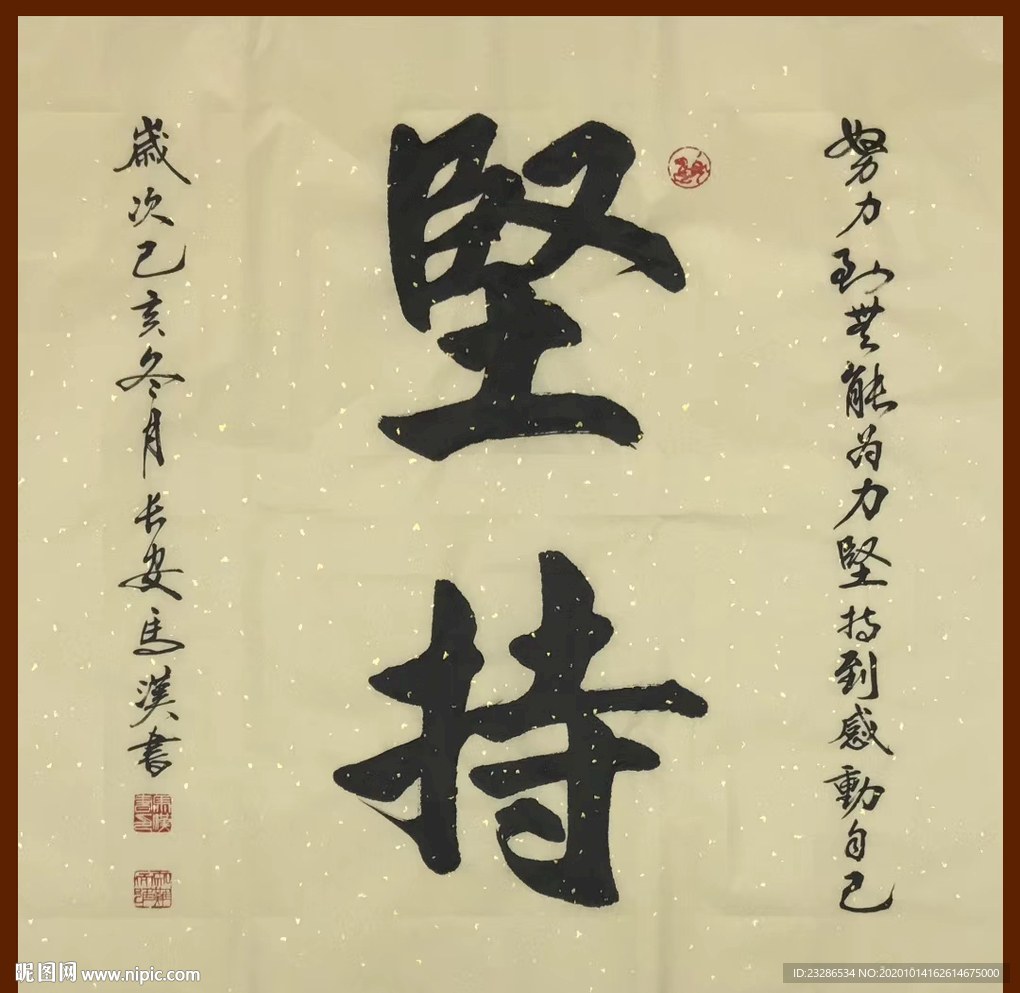 努力到無能為力堅持到感動自己
堅持
歲次己亥冬月长安馬漢書
昵图网 www.nipic.com
ID:23286534 NO:20201014162614675000